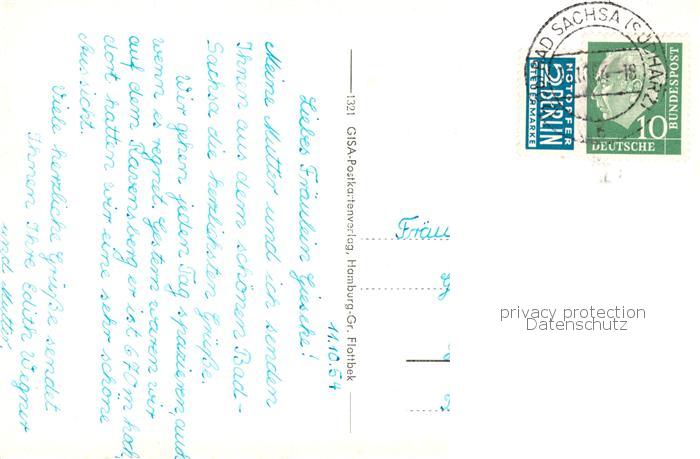 11.10.54
Liebes Fräulein Gieseke!
Meine Mutter und ich senden
Ihnen aus dem schönen Bad-
Sachsa die herzlichsten Grüße.
Wir gehen jeden Tag spazieren, auch
wenn es regnet. Gestern waren wir
auf dem Ravensberg er ist 670 m hoch,
dort hatten wir eine sehr schöne
Aussicht.
Viele herzliche Grüße sendet
Ihnen Ihre Edith Wigner
und Mutter
1321 GISA-Postkartenverlag, Hamburg-Gr. Flottbek
BAD SACHSA (SÜDHARZ)
NOTOPFER
2 BERLIN
STEUERMARKE
10
DEUTSCHE
BUNDESPOST
Fräu
privacy protection
Datenschutz